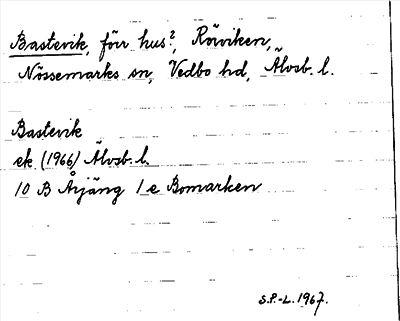 Bastevik, förr hus?, Rörviken,
Nössemarks sn, Vedbo hd, Älvsb. l.
Bastevik
ek (1966) Älvsb. l.
10 B Årjäng 1 e Bomarken
S.P.-L. 1967.